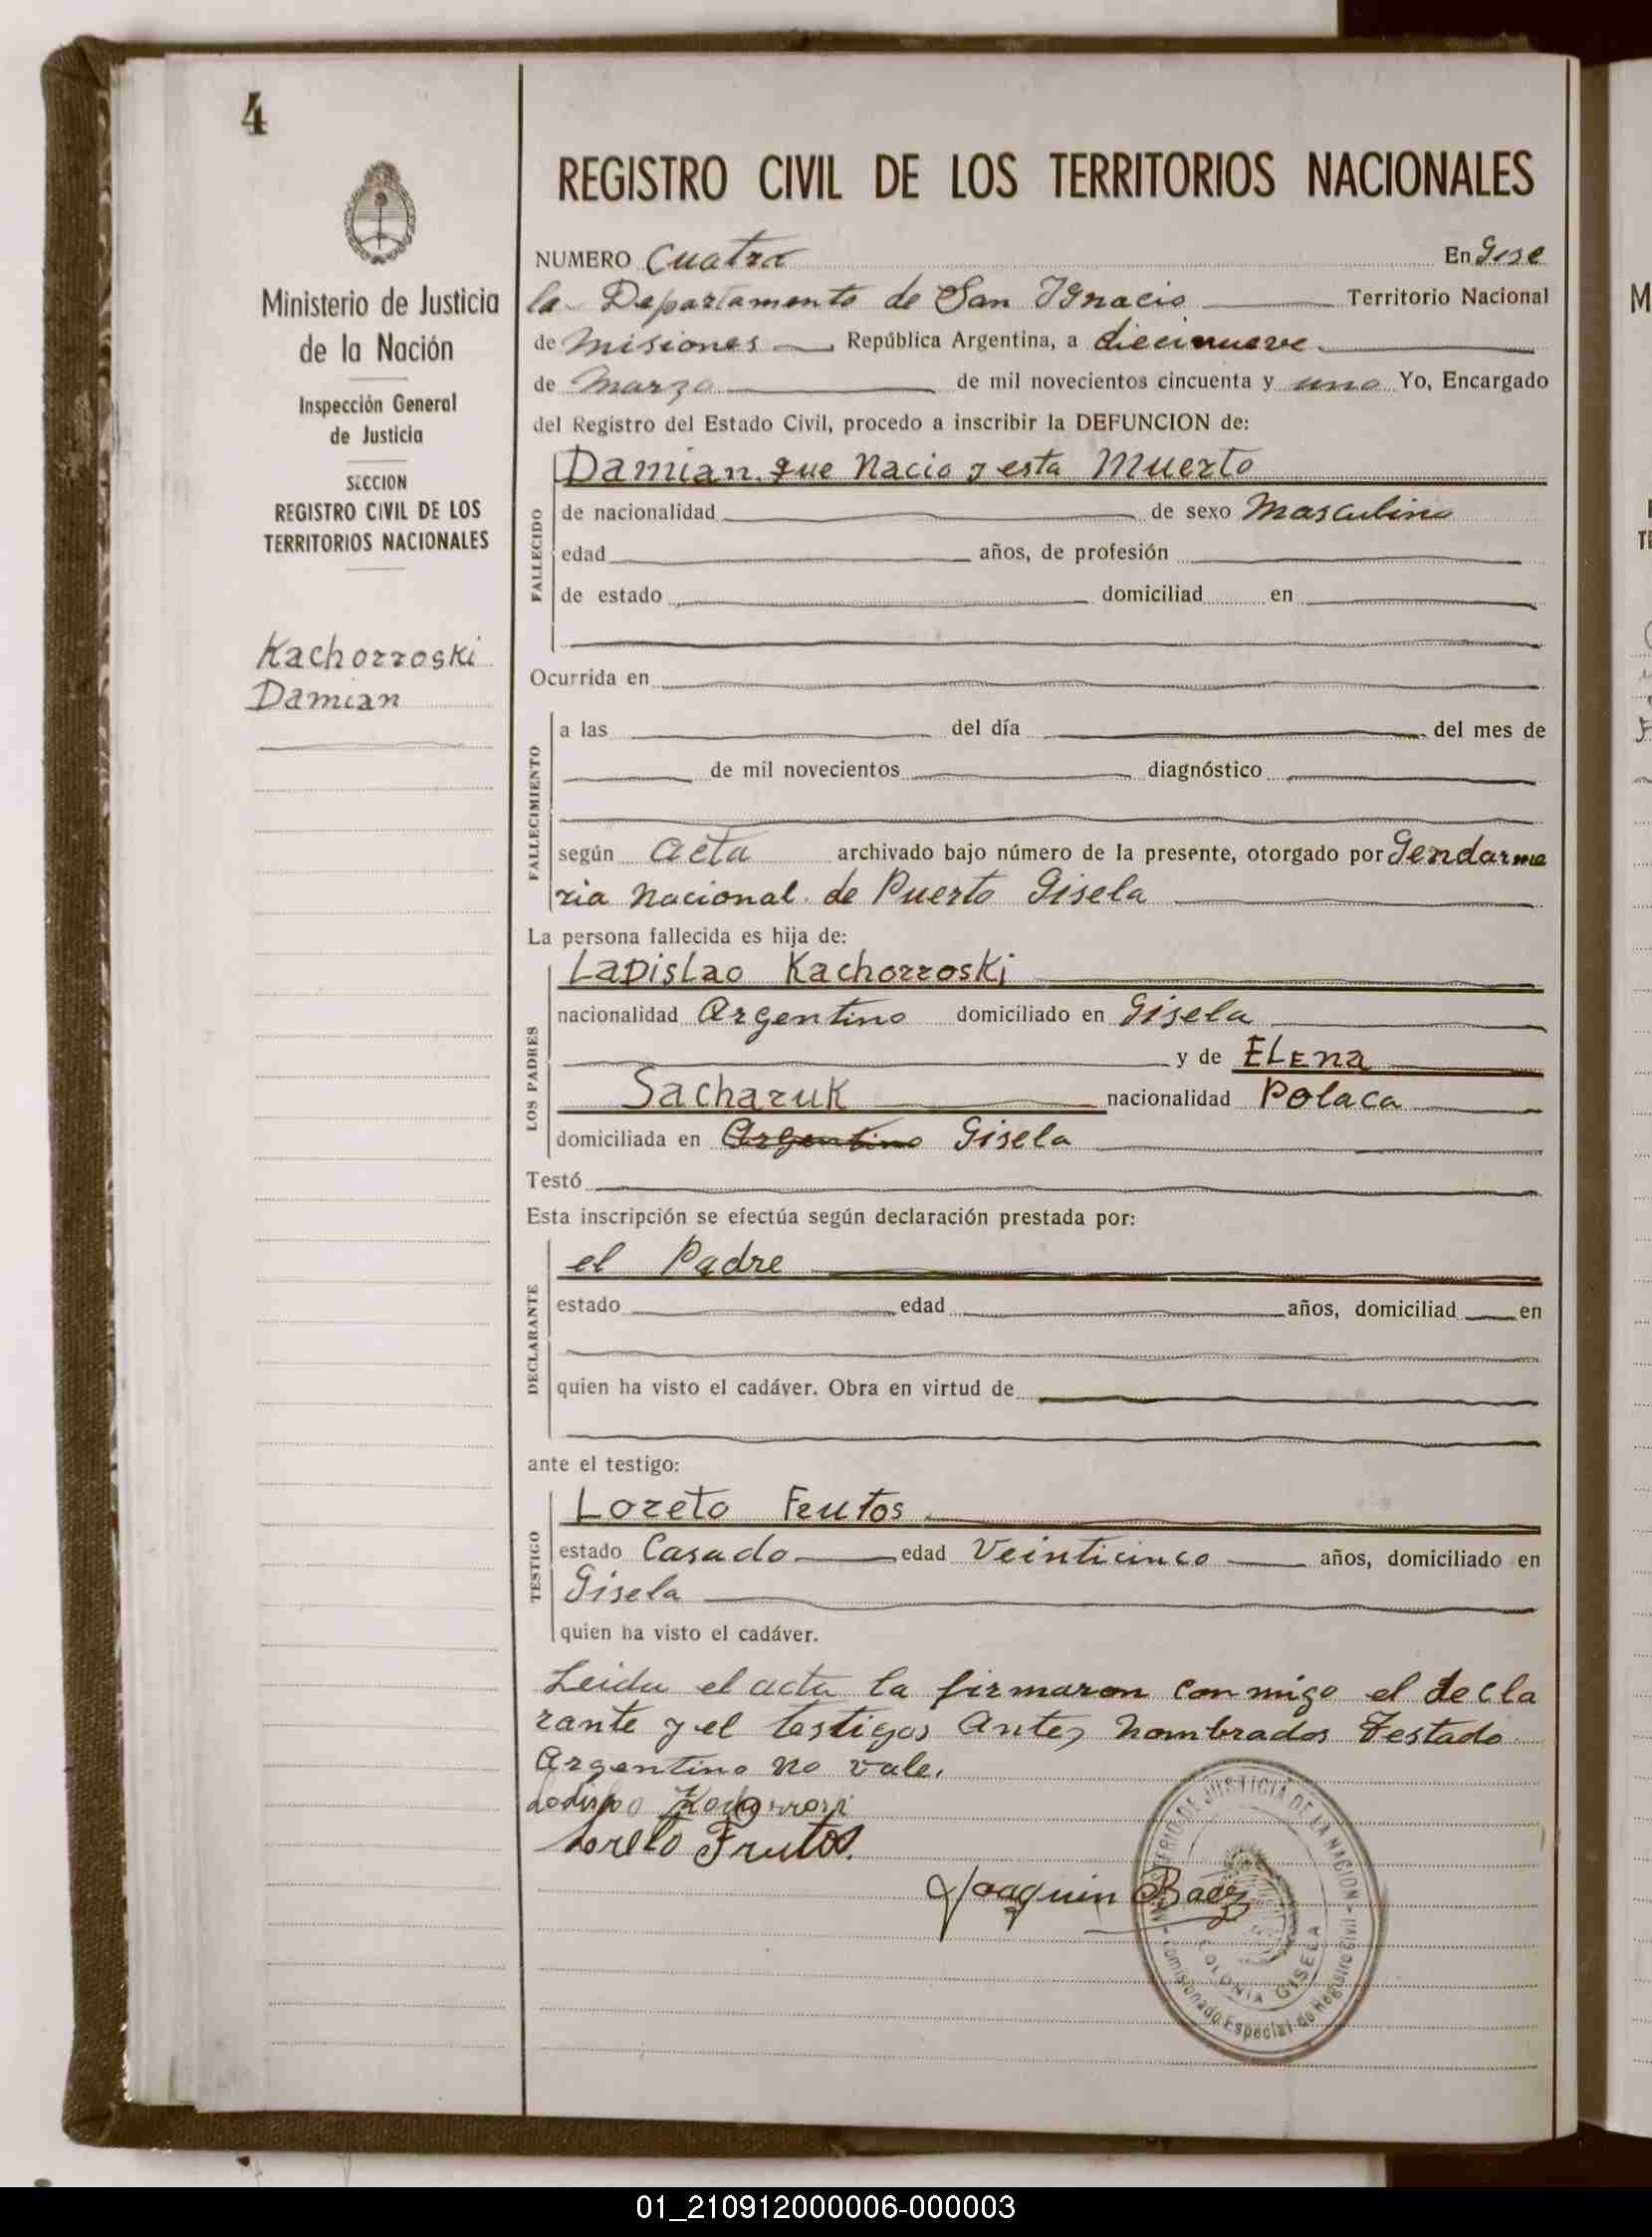 4
Ministerio de Justicia
de la Nación
Inspección General
de Justicia
SECCION
REGISTRO CIVIL DE LOS
TERRITORIOS NACIONALES
Kachorroski
Damian
REGISTRO CIVIL DE LOS TERRITORIOS NACIONALES
NUMERO Cuatro En Gise
la Departamento de San Ignacio Territorio Nacional
de Misiones República Argentina, a diecinueve
de Marzo de mil novecientos cincuenta y uno Yo, Encargado
del Registro del Estado Civil, procedo a inscribir la DEFUNCION de:
Damian. que Nacio y esta Muerto
FALLECIDO
de nacionalidad de sexo Masculino
edad años, de profesión
de estado domiciliad en
Ocurrida en
FALLECIMIENTO
a las del día del mes de
de mil novecientos diagnóstico
según acta archivado bajo número de la presente, otorgado por Gendarme
ria Nacional de Puerto Gisela
La persona fallecida es hija de:
LOS PADRES
Ladislao Kachorroski
nacionalidad Argentino domiciliado en Gisela
y de Elena
Sacharuk nacionalidad Polaca
domiciliada en Argentino Gisela
Testó
Esta inscripción se efectúa según declaración prestada por:
DECLARANTE
el Padre
estado edad años, domiciliad en
quien ha visto el cadáver. Obra en virtud de
ante el testigo:
TESTIGO
Loreto Frutos
estado Casado edad Veinticinco años, domiciliado en
Gisela
quien ha visto el cadáver.
Leida el acta la firmaron conmigo el decla
rante y el testigos antes nombrados Testado
Argentino no vale.
Loreto Frutos.
Joaquin Baez
MINISTERIO DE JUSTICIA DE LA NACION
COLONIA GISELA
Comisionado Especial de Registro Civil
01_210912000006-000003